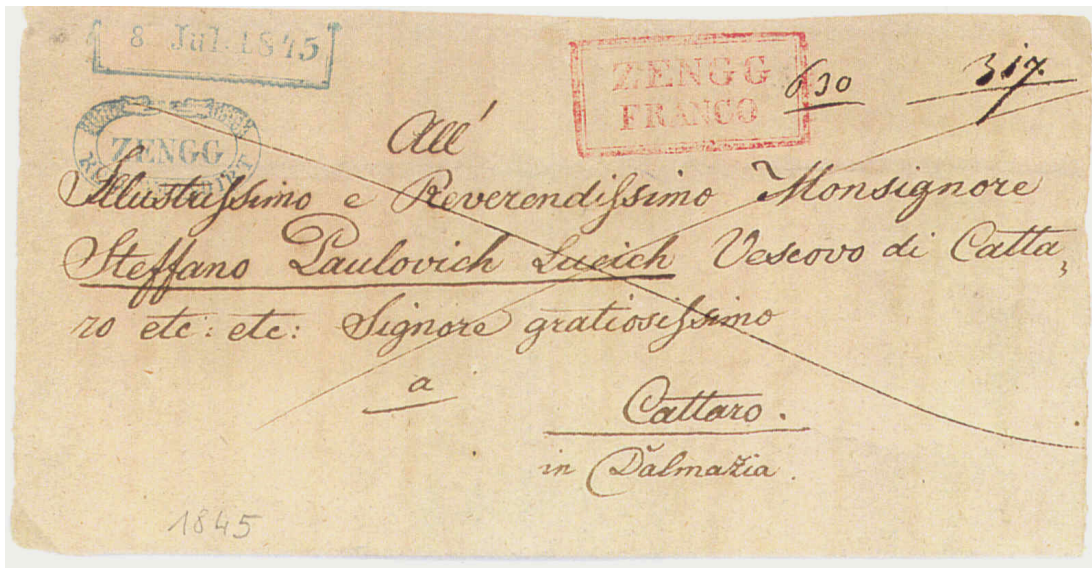 8 Jul. 1845
ZENGG
FRANCO
630
317.
ZENGG
RECOMMANDIRT
All'
Illustrissimo e Reverendissimo Monsignore
Steffano Paulovich Lucich Vescovo di Catta,
ro etc: etc: Signore gratiosissimo
a
Cattaro.
in Dalmazia.
1845